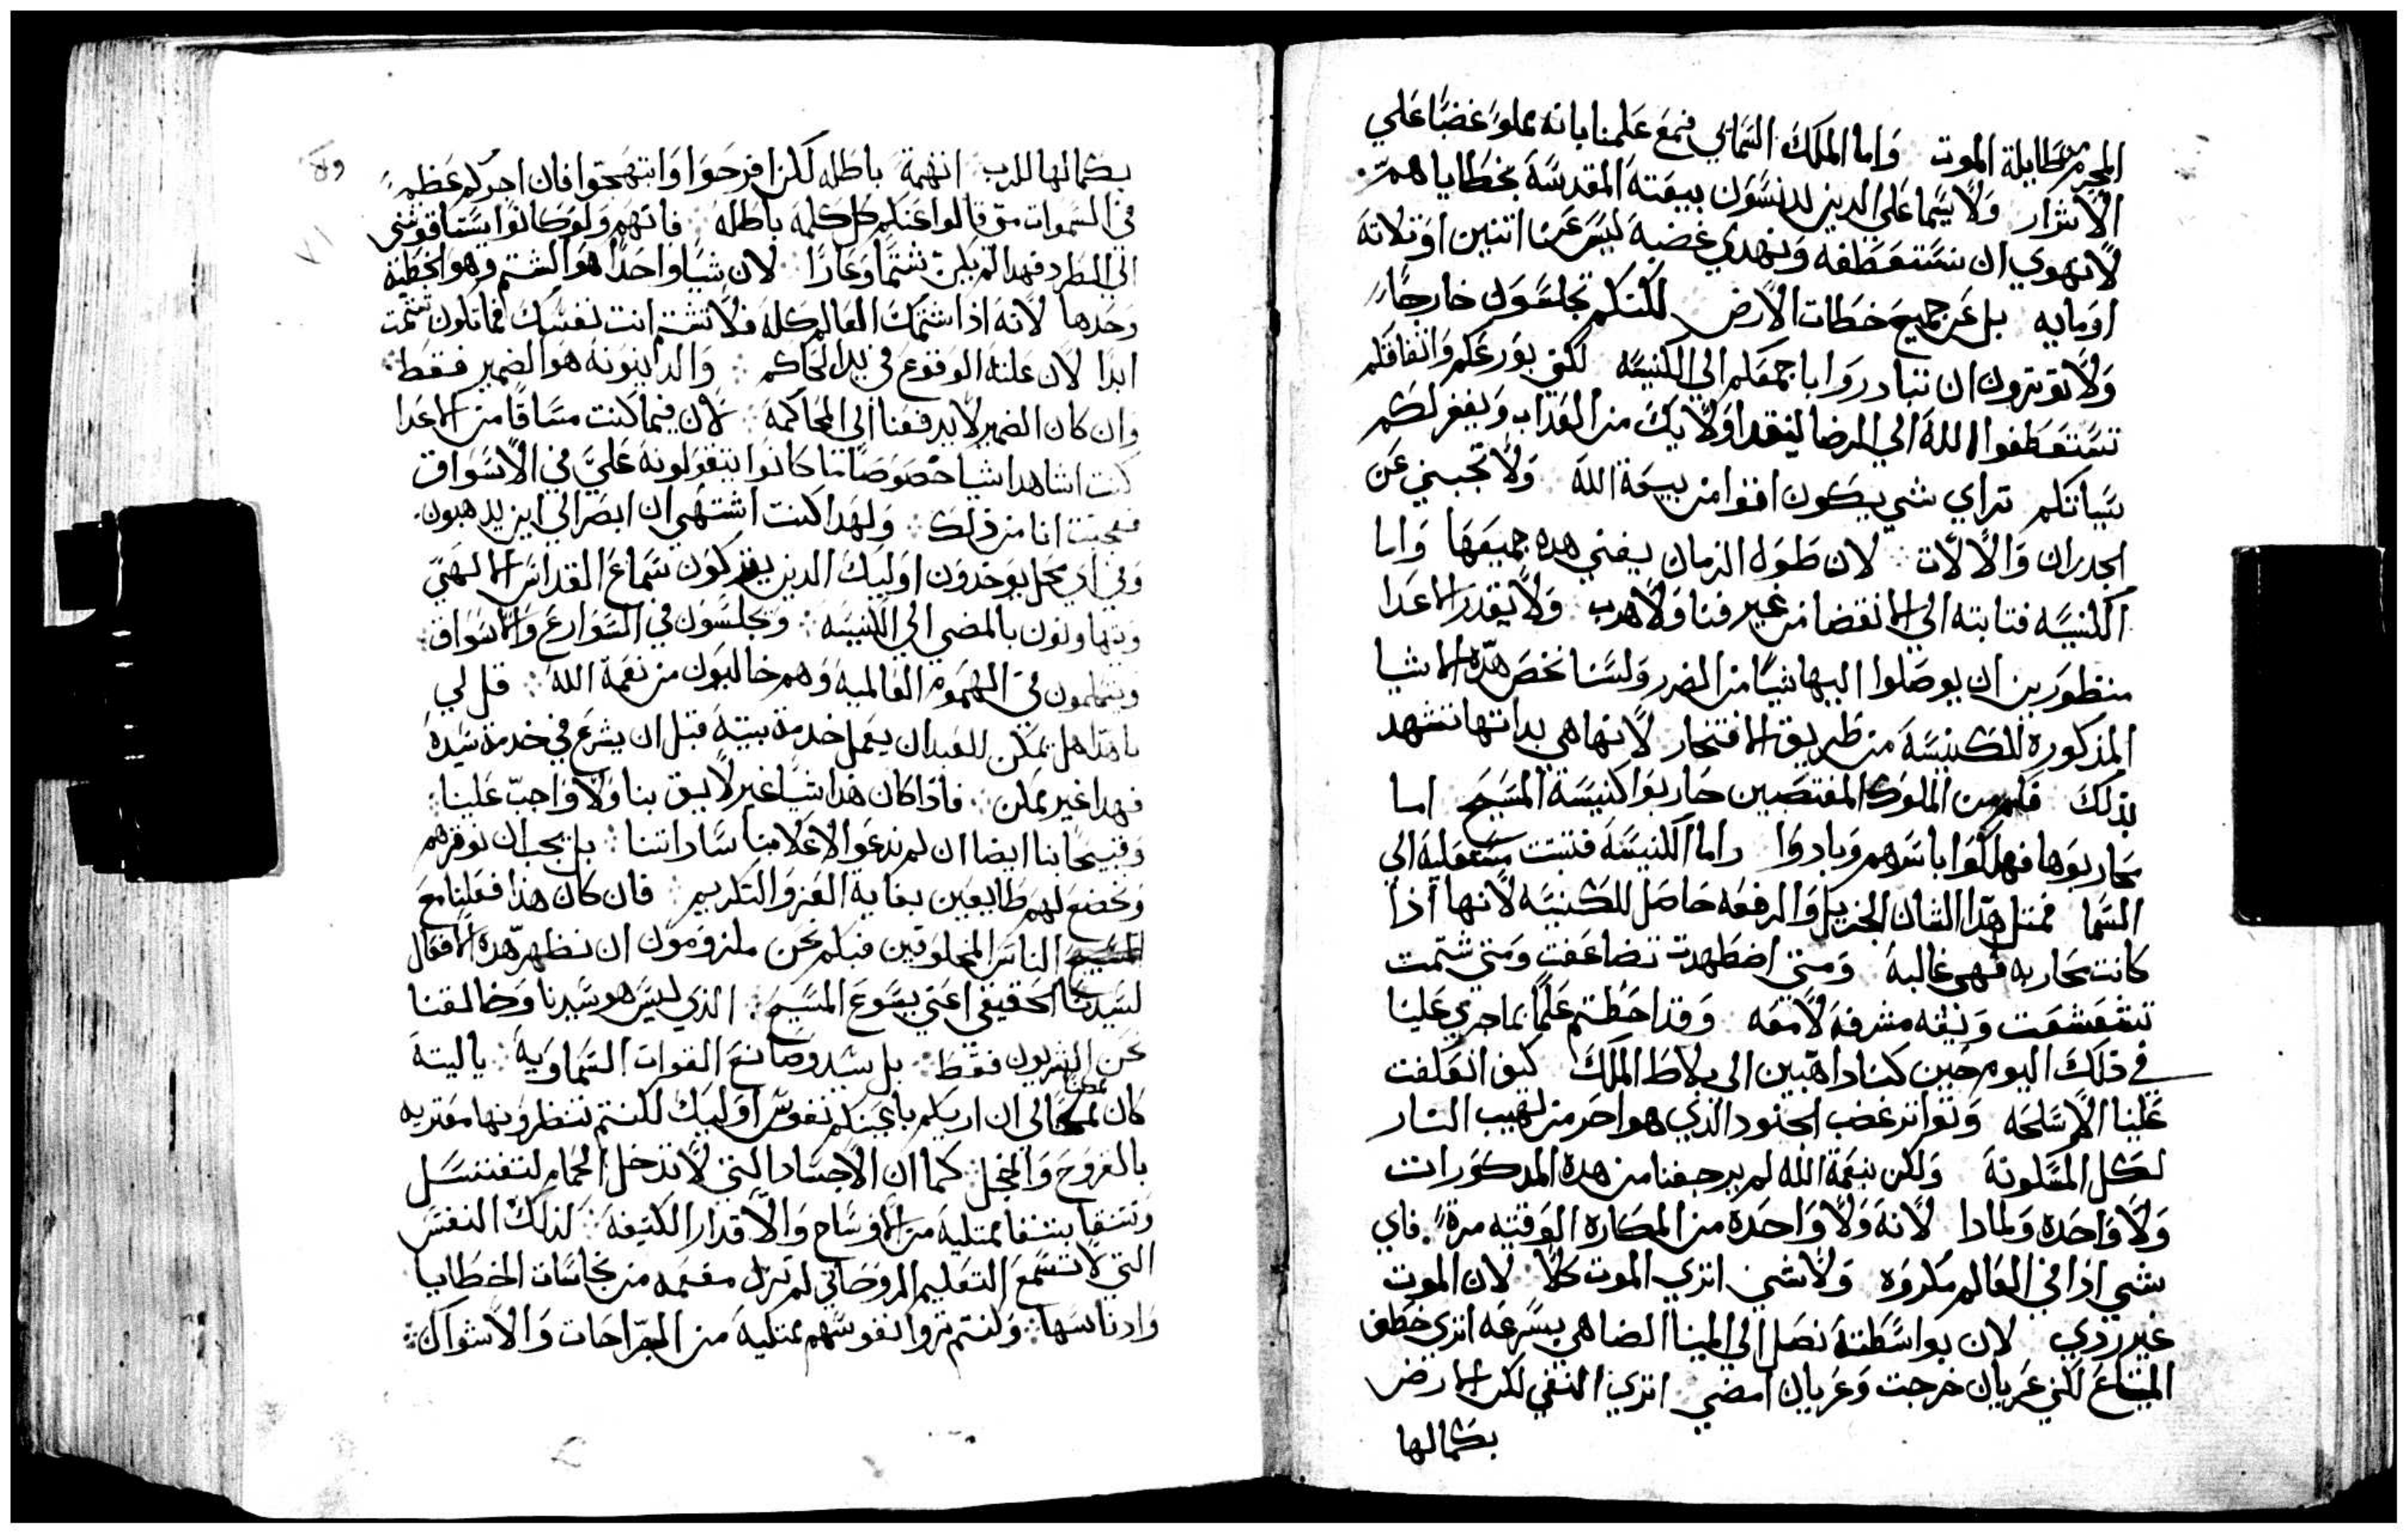 المجرم طايلة الموت وَاما الملك السَّمائي فمع عَلمنا بانه مملو غضبًا عَلي
الاشرار وَلاسَيما عَلي الدين يدنسَون بيعَته المقدسَة بخطاياهم
لانهوي ان نستعَطفه وَنهدي غضبه ليسَ عَن اتنين اوَتلاته
اوَمايه بل عَن جميع خطات الارض لكنكم تجلسَون خارجًا
وَلا توترون ان تبادروَا باجمعَكم الي الكنيسَه لكي بوَرعَكم وَاتفاقكم
تستعَطفوا الله الي الرضا لينقد اوَلايك من العَداب وَيغفر لكم
سَياتكم تراي شي يكون اقوا من بيعَة الله وَلا تجبني عَن
الجدران وَالالات لان طوَل الزمان يفني هده جميعَها وَاما
الكنيسَه فتابته الي الانقضا من غير فنا وَلا هدب وَلا يقدر الاعَدا
منظورَين ان يوصَلوا اليها شيًا من الضرر وَلسَنا نخصَ هده الاشيا
المذكوره للكنيسَة من طريق الافتخار لانها هي بداتها تشهد
بذلك فكم من الملوَك المغتصَبين حَاربوَا كنيسَة المسَيح اما
محَاربوَها فهلكوَا باسَرهم وَبادوَا واما الكنيسَة فتبتت مسَتعَليه الي
السَما فمتل هدا الشان الجزيل وَالرفعَه حَاصَل للكنيسَه لانها اذا
كانت محَاربه فهي غالبه وَمتي اضطهدت تضاعَفت وَمتي شتمت
تتقعَشعَت وَنيقه مشرفه لامعَه وَقد احَطتم عَلمًا بما جري عَلينا
في ذلك اليوم حَين كنا داهبين الي بلاط الملك كيف انعَكفت
عَلينا الاسَلحَه وَتواتر غضب الجنود الذي هو احَر من لهيب النار
لكل المسَكونة وَلكن بنعَمة الله لم يرجفنا من هده المدكوَرات
وَلا وَاحَده وَلمادا لانه وَلا وَاحَدة من المكاره الوَقتيه مرة فاي
شي اذا في العَالم مكروَه وَلاشي اتري الموت كلا لان الموت
غير ردي لان بوَاسَطته نصَل الي المينا الضاهي بسَرعَه اتري خطف
المتاع لكني عَريان خرجت وَعَريان امضي اتري النفي لكن الارض
بكمالها
بكمالها للرب اتهمة باطله لكن افرحَوَا وَابتهجَوَا فان اجركم عَظم
في السَموات متي قالوا عَنكم كل كلمه باطله فانهم وَلوَ كانوا يسَتاقوَنني
الي المطرد فهدا لم يكن شتمًا وَعَارًا لان شيًا واحَدًا هوَ الشتم وَهو الخطية
وَحَدها لانه اذا شتمك العَالم كله فلا تشتم انت نفسَك فما تكون شتمت
ابدًا لان عَلته الوقوع في يد الحَاكم وَالداينوَنه هوَ الضمير فقط
وَان كان الضمير لا يدفعَنا الي المحَاكمة لان فيما كنت مسَاقًا من الاعَدا
كنت اشاهد اشيا خصَوصًا ما كانوَا يتقوَلونه عَليَّ في الاسَواق
فعجبت انا من ذلك وَلهدا كنت اشتهي ان ابصَر الي اين يدهبون
وَفي اي محَل يوَجدَون اوَليك الدين يتركوَن سَماع القداسَ الالهي
ويتهاونون بالمضي الي الكنيسَة وَيجلسَون في الشوَارع وَالاسَواق
ويتكلمون في الهموَم العَالمية وَهم خاليوَن من نعَمة الله قل لي
يا هدا هل يمكن للعَبد ان يعَمل خدمة بيتة قبل ان يشرع في خدمة سَيده
فهدا غير ممكن فاذا كان هدا شيًا غير لايق بنا وَلا وَاجب عَلينا
وَقبيحًا بنا ايضا ان لم ندعَو الاعَلا منا سَاداتنا بل يجب ان نوقرهم
وَنخضع لهم طايعَين بغاية العَز وَالتكريم فان كان هذا فعَلنا مع
الناسَ المخلوَقين فبكم نحَن ملزوَموَن ان نظهر هده الافعَال
لسَيدنا الحَقيقي اعَني يسَوع المسَيح الذي ليسَ هو سَيدنا وَخالقنا
نحَن البشريون فقط بل سَيد وصَانع القوات السَماوَية ياليتة
كان ممكنًا لي ان اريكم باعَينكم نفوسَ اوَليك لكنتم تنظروَنها معَتريه
بالقروَحَ وَالخجل كما ان الاجسَاد التي لا تدخل الحَمام لتغتسَل
وَتتنقا تنتفا ممتليه من الاوَسَاخ وَالاقدار الكتيفة كذلك النفسَ
التي لا تسَمع التعَليم الروَحَاني لم تزل مفعَمه من نجاسَات الخطايا
وَادناسَها وَلنتم تروا نفوسَهم ممتليه من الجرَاحَات وَالاشواك